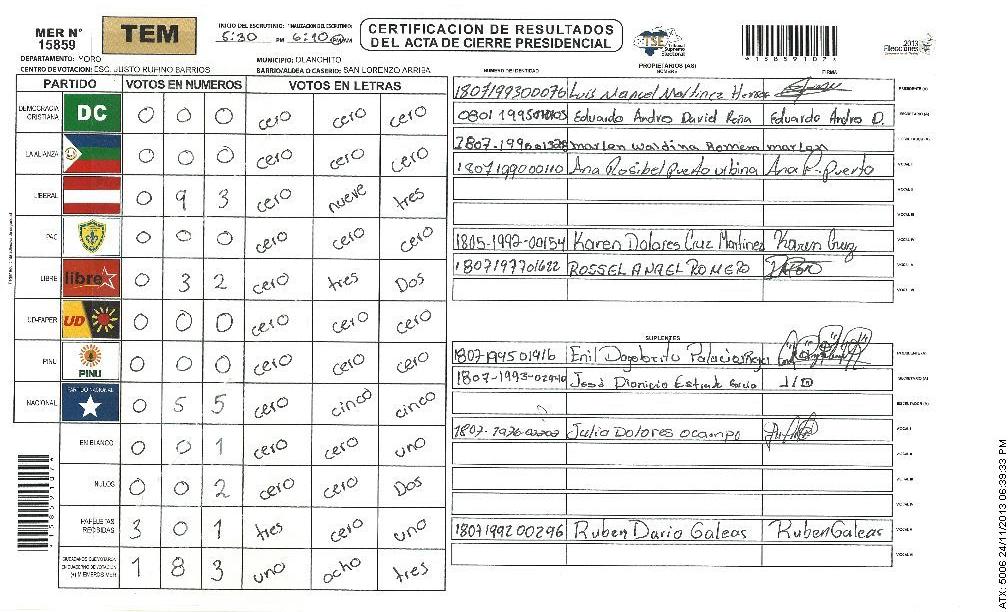 MER N° 15859
TEM
INICIO DEL ESCRUTINIO: 5:30 PM FINALIZACION DEL ESCRUTINIO: 6:10 PM
CERTIFICACION DE RESULTADOS
DEL ACTA DE CIERRE PRESIDENCIAL
TSE Tribunal Supremo Electoral
*1585910?*
2013 Elecciones
DEPARTAMENTO: YORO
MUNICIPIO: OLANCHITO
CENTRO DE VOTACION: ESC. JUSTO RUFINO BARRIOS
BARRIO/ALDEA O CASERIO: SAN LORENZO ARRIBA
PARTIDO VOTOS EN NUMEROS VOTOS EN LETRAS
DEMOCRACIA CRISTIANA DC 0 0 0 cero cero cero
LA ALIANZA 0 0 0 cero cero cero
LIBERAL 0 9 3 cero nueve tres
PAC 0 0 0 cero cero cero
LIBRE libre 0 3 2 cero tres Dos
UD-FAPER UD 0 0 0 cero cero cero
PINU PINU 0 0 0 cero cero cero
NACIONAL PARTIDO NACIONAL 0 5 5 cero cinco cinco
EN BLANCO 0 0 1 cero cero uno
NULOS 0 0 2 cero cero Dos
PAPELETAS RECIBIDAS 3 0 1 tres cero uno
CIUDADANOS QUE VOTARON EN CUADERNO DE VOTACION (+) MIEMBROS MER 1 8 3 uno ocho tres
NUMERO DE IDENTIDAD PROPIETARIOS (AS) NOMBRE FIRMA
1807199300076 Luis Manuel Martinez PRESIDENTE (A)
Eduardo Andro David Peña Eduardo Andro D. SECRETARIO (A)
marlen waldina Romero marlen
1807199000110 Ana Rosibel Puerto urbina Ana R. Puerto VOCAL I
VOCAL II
VOCAL III
1805-1992-00154 Karen Dolores Cruz Martinez Karen Cruz VOCAL IV
1807197701622 ROSSEL ANGEL ROMERO VOCAL V
VOCAL VI
SUPLENTES
1807199501916 Enil Dagoberto Palacios PRESIDENTE (A)
José Dionicio Estrada SECRETARIO (A)
ESCRUTADOR (A)
Julia Dolores ocampo VOCAL I
VOCAL II
VOCAL III
VOCAL IV
1807199200296 Ruben Dario Galeas Ruben Galeas VOCAL V
VOCAL VI
ATX: 5006 24/11/2013 06:39:33 PM